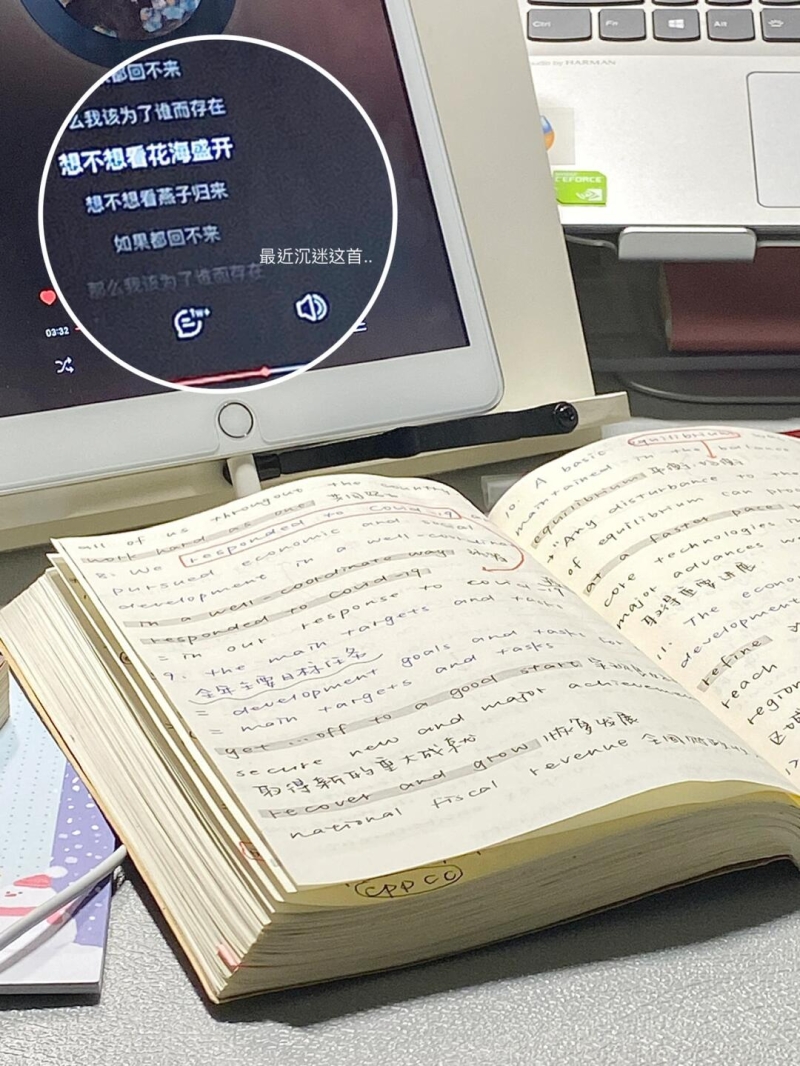 都回不来
么我该为了谁而存在
想不想看花海盛开
想不想看燕子归来
如果都回不来
那么我该为了谁而存在
最近沉迷这首..
1w+
03:32
Ctrl
Fn
Alt
HARMAN
GEFORCE
all of us throughout the country
work hard as one
responded to Covid-19
8. We
pursued economic and social
development in a well-coordinate way
in a well-coordinate way
responded to Covid-19
= in our response to covid
9. the main targets and tasks
今年主要目标任务
= development goals and tasks
= main targets and tasks
get...off to a good start
secure new and major achievemen
取得新的重大成就
recover and grow 恢复发展
national fiscal revenue
CPPCC
equilibrium
10. A basic
maintained in the balance
equilibrium
+ Any disturbance to the
of equilibrium can
at a faster pace
core technologies
major advances
取得重要进展
11. The econo
development
refine
reach
region